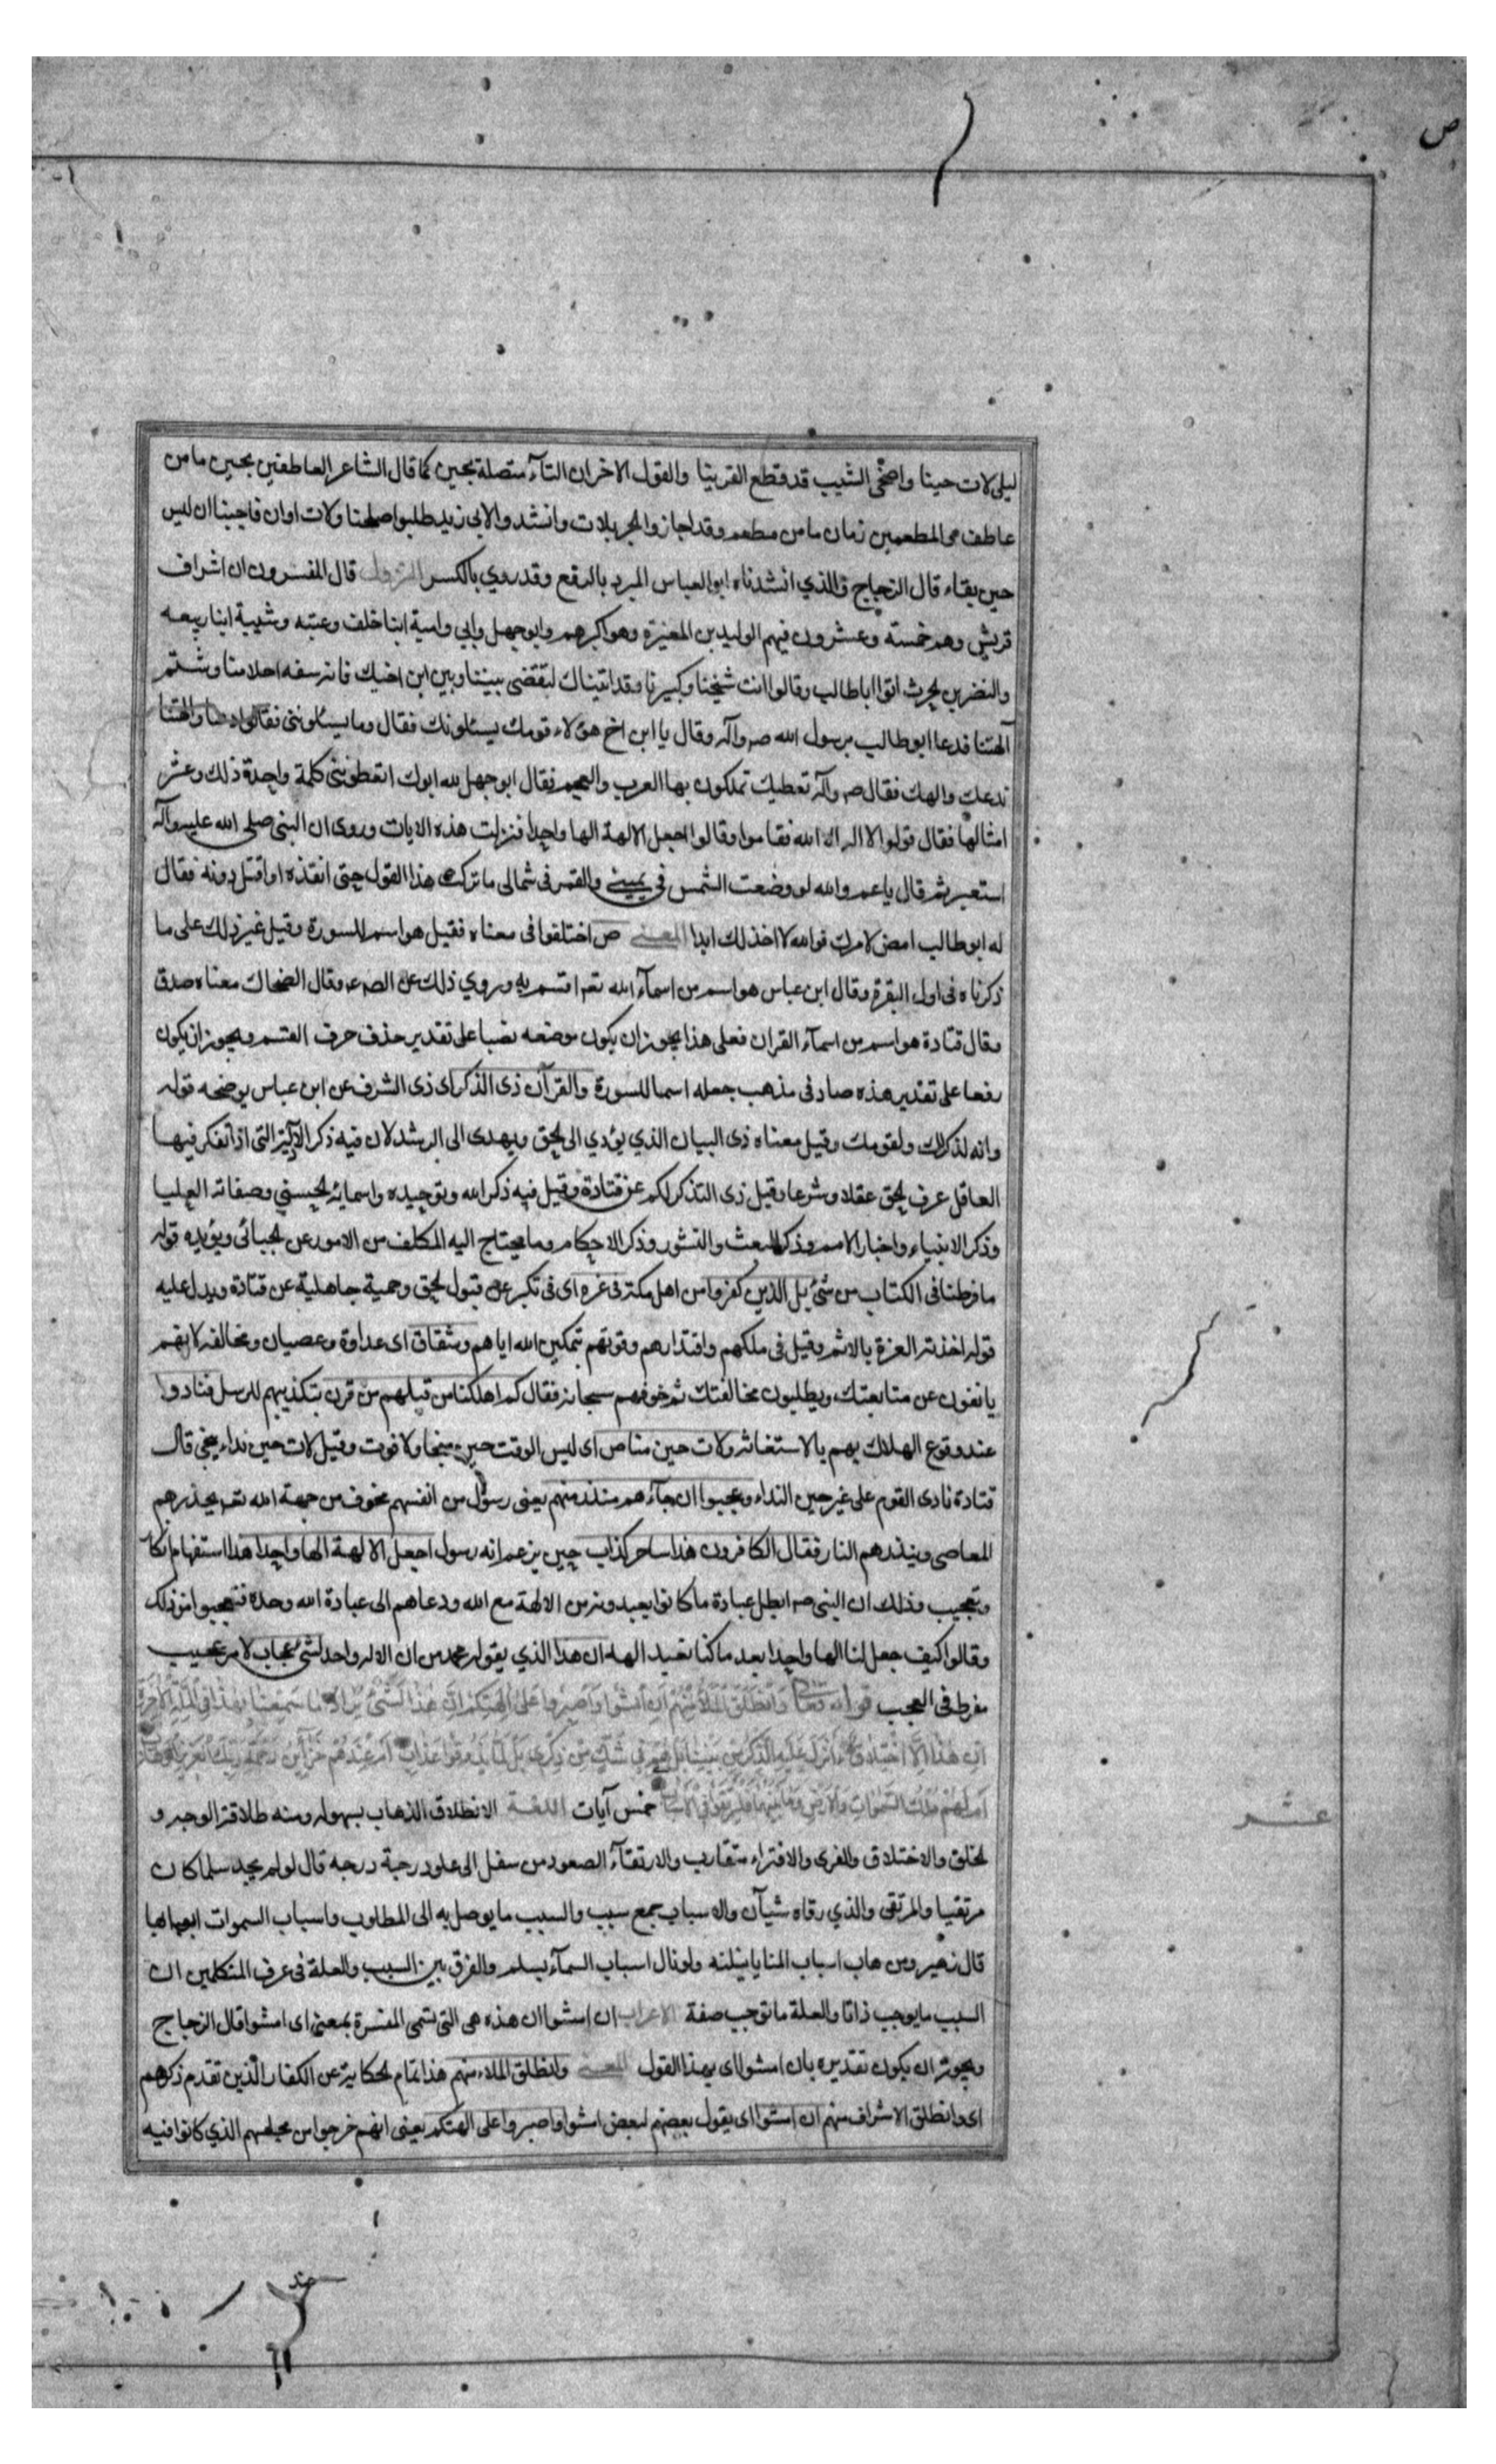 ص
ليلى لات حينا واضحى الشيب قد قطع القرينا والقول الاخر ان التآء متصلة بحين كما قال الشاعر العاطفين بحين ما من
عاطف هى المطعمين زمان ما من مطعم وقد اجازوا الجر بلات وانشدوا لابى زيد طلبوا صلحنا ولات اوان فاجبنا ان ليس
حين بقاء قال الزجاج والذي انشدناه ابو العباس المبرد بالرفع وقد روي بالكسر النزول قال المفسرون ان اشراف
قريش وهم خمسة وعشرون فيهم الوليد بن المغيرة وهو اكبرهم وابو جهل وابي وامية ابنا خلف وعتبه وشيبة ابنا ربيعه
والنضر بن الحرث اتوا اباطالب وقالوا انت شيخنا وكبيرنا وقد اتيناك لتقضى بيننا وبين ابن اخيك فانه سفه احلامنا وشتم
آلهتنا فدعا ابو طالب رسول الله صـ وآله وقال يا ابن اخ هؤلاء قومك يسئلونك فقال وما يسئلوننى فقالوا دعنا والهتنا
ندعك والهك فقال صـ وآله تعطيك تملكون بها العرب والعجم فقال ابو جهل لله ابوك اتعطوننى كلمة واحدة ذلك وعشر
امثالها فقال قولوا لا اله الا الله فقاموا وقالوا اجعل الالهة الها واحدا فنزلت هذه الايات وروى ان النبى صلى الله عليه وآله
استعبر ثم قال ياعم والله لو وضعت الشمس فى يمينى والقمر فى شمالى ما تركت هذا القول حتى انفذه او اقتل دونه فقال
له ابو طالب امض لامرك فوالله لا اخذلك ابدا المعنى ص اختلفوا فى معناه فقيل هو اسم للسورة وقيل غير ذلك على ما
ذكرناه فى اول البقرة وقال ابن عباس هو اسم من اسمآء الله تعـ اقتسم به وروي ذلك عن الصـ عـ وقال الضحاك معناه صدق
وقال قتادة هو اسم من اسمآء القران فعلى هذا يجوز ان يكون موضعه نصبا على تقدير حذف حرف القسم ويجوز ان يكون
رفعا على تقدير هذه صاد فى مذهب جعله اسما للسورة والقرآن ذى الذكر اى ذى الشرف عن ابن عباس يوضحه قوله
وانه لذكر لك ولقومك وقيل معناه ذى البيان الذي يؤدي الى الحق ويهدى الى الرشد لان فيه ذكر الادلة التى اذا تفكر فيها
العاقل عرف الحق عقلا وشرعا وقيل ذى التذكر لكم عن قتادة وقيل فيه ذكر الله وتوحيده واسمائه الحسنى وصفاته العليا
وذكر الانبياء واخبار الامم وذكر البعث والنشور وذكر الاحكام وما يحتاج اليه المكلف من الامور عن الجبائى ويؤيده قوله
ما فرطنا فى الكتاب من شئ بل الذين كفروا من اهل مكة فى عزه اى فى تكبر عن قبول الحق وحمية جاهلية عن قتادة ويدل عليه
قوله اخذته العزة بالاثم وقيل فى ملكهم واقتدارهم وقوتهم بتمكين الله اياهم وشقاق اى عداوة وعصيان ومخالفه لانهم
يانفون عن متابعتك ويطلبون مخالفتك ثم خوفهم سبحانه فقال كم اهلكنا من قبلهم من قرن بتكذيبهم للرسل فنادوا
عند وقوع الهلاك بهم بالاستغاثه ولات حين مناص اى ليس الوقت حين منجا ولا فوت وقيل لات حين نداء ينجى قال
قتادة نادى القوم على غير حين النداء وعجبوا ان جآءهم منذر منهم يعنى رسول من انفسهم مخوف من جهة الله تعـ يحذرهم
المعاصى وينذرهم النار فقال الكافرون هذا ساحر كذاب حين يزعم انه رسول اجعل الالهة الها واحدا هذا استفهام انكار
وتعجيب وذلك ان النبى صـ ابطل عبادة ما كانوا يعبدونه من الالهة مع الله ودعاهم الى عبادة الله وحده فتعجبوا من ذلك
وقالوا كيف جعل لنا الها واحدا بعد ما كنا نعبد الهه ان هذا الذي يقوله محمد من ان الاله واحد لشئ عجاب لامر عجيب
مفرط فى العجب قوله تعالى وَانْطَلَقَ الْمَلَأُ مِنْهُمْ اَنِ امْشُوا وَاصْبِرُوا عَلَى الِهَتِكُمْ اِنَّ هٰذَا لَشَىْءٌ يُرَادُ مَا سَمِعْنَا بِهٰذَا فِى الْمِلَّةِ الْآخِرَةِ
اِنْ هٰذَا اِلَّا اخْتِلَاقٌ ءَاُنْزِلَ عَلَيْهِ الذِّكْرُ مِنْ بَيْنِنَا بَلْ هُمْ فِى شَكٍّ مِنْ ذِكْرِى بَلْ لَمَّا يَذُوقُوا عَذَابِ اَمْ عِنْدَهُمْ خَزَآئِنُ رَحْمَةِ رَبِّكَ الْعَزِيزِ الْوَهَّابِ
اَمْ لَهُمْ مُلْكُ السَّمٰوَاتِ وَالْاَرْضِ وَمَا بَيْنَهُمَا فَلْيَرْتَقُوا فِى الْاَسْبَابِ خمس آيات اللغة الانطلاق الذهاب بسهوله ومنه طلاقة الوجه و
عشر
الخلق والاختلاق والفرى والافتراء متقارب والارتقآء الصعود من سفل الى علو درجة درجه قال لو لم يجد سلما كان
مرتقيا والمرتقى والذي رقاه شيآن والاسباب جمع سبب والسبب ما يوصل به الى المطلوب واسباب السموات ابوابها
قال زهير ومن هاب اسباب المنايا ينلنه ولو نال اسباب السمآء بسلم والفرق بين السبب والعلة فى عرف المتكلمين ان
السبب ما يوجب ذاتا والعلة ما توجب صفة الاعراب ان امشوا ان هذه هى التى تسمى المفسرة بمعنى اى امشوا قال الزجاج
ويجوز ان يكون تقديره بان امشوا اى بهذا القول المعنى وانطلق الملاء منهم هذا تمام الحكاية عن الكفار الذين تقدم ذكرهم
اى وانطلق الاشراف منهم ان امشوا اى يقول بعضهم لبعض امشوا واصبروا على الهتكم يعنى انهم خرجوا من مجلسهم الذي كانوا فيه